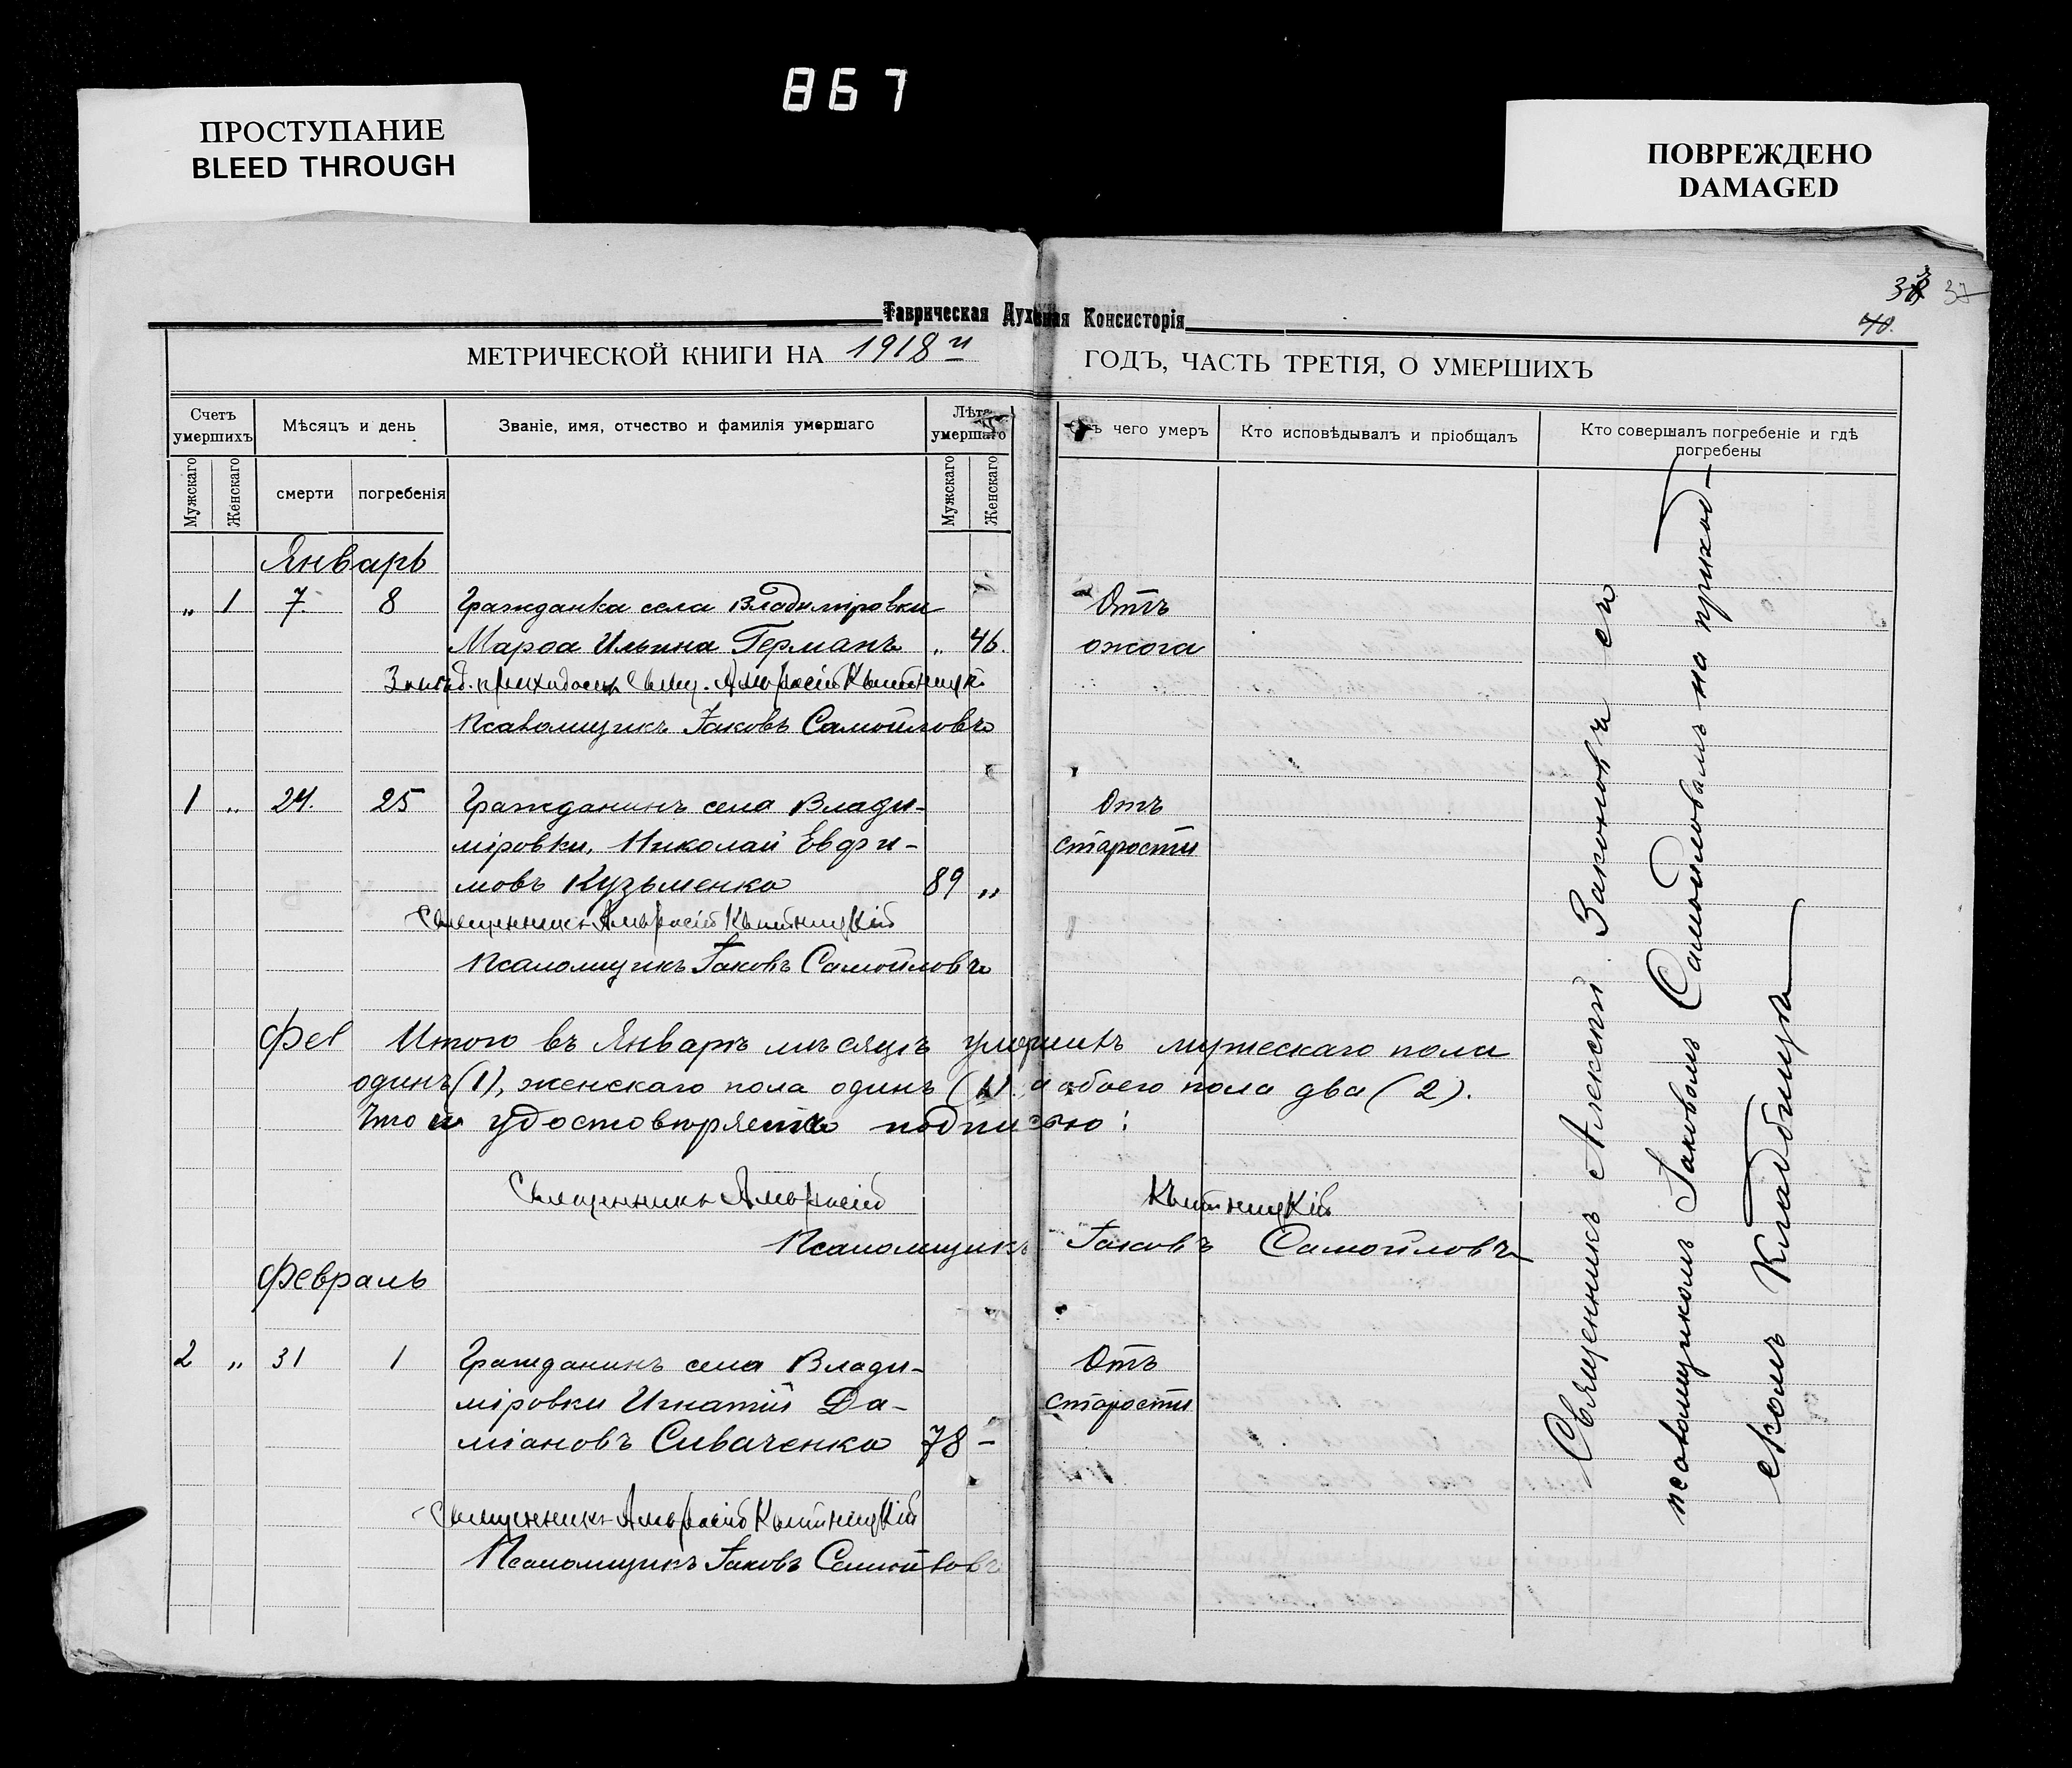 867
ПРОСТУПАНИЕ
BLEED THROUGH
ПОВРЕЖДЕНО
DAMAGED
37
40.
Таврическая Духовная Консисторія
МЕТРИЧЕСКОЙ КНИГИ НА 1918 й ГОДЪ, ЧАСТЬ ТРЕТІЯ, О УМЕРШИХЪ
Счетъ умершихъ
Мѣсяцъ и день
Званіе, имя, отчество и фамилія умершаго
Лѣта умершаго
Отъ чего умеръ
Кто исповѣдывалъ и пріобщалъ
Кто совершалъ погребеніе и гдѣ погребены
Мужскаго
Женскаго
смерти
погребенія
Мужскаго
Женскаго
Январь
„ 1 7 8 Гражданка села Владиміровки Отъ
Марѳа Ильина Германъ „ 46. ожога
приходомъ Свящ. Амвросій Квитницкій
Псаломщикъ Іаковъ Самойловъ
1 „ 24. 25 Гражданинъ села Влади- Отъ
міровки, Николай Евфи- старости
мовъ Кузьменко 89 „
Священникъ Амвросій Квитницкій
Псаломщикъ Іаковъ Самойловъ
Фев Итого въ Январѣ мѣсяцѣ умершихъ мужескаго пола
одинъ (1), женскаго пола одинъ (1) а обоего пола два (2).
Что и удостовѣряемъ подписью:
Священникъ Амвросій Квитницкій
Псаломщикъ Іаковъ Самойловъ
Февраль
2 „ 31 1 Гражданинъ села Влади- Отъ
міровки Игнатій Да- старости
міановъ Сиваченко 78 –
Священникъ Амвросій Квитницкій
Псаломщикъ Іаковъ Самойловъ
Священникъ Алексій Законовъ съ
псаломщикомъ Іаковомъ Самойловымъ на приход-
скомъ Кладбищѣ